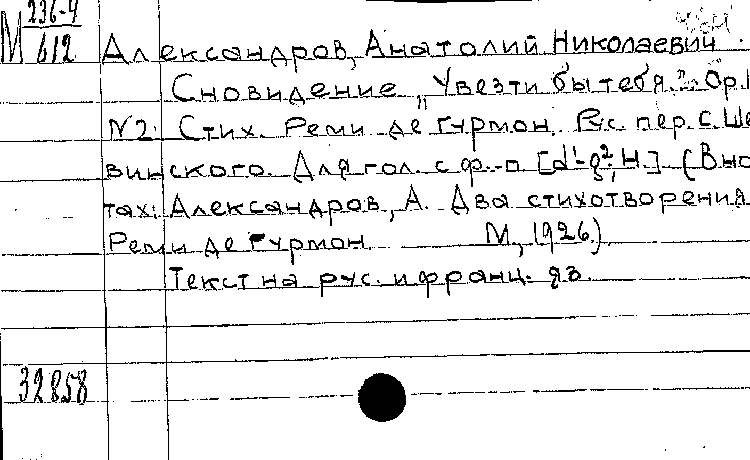 М 236-4
612
Александров, Анатолий Николаевич.
Сновидение „Увезти бы тебя.." Ор.
N2. Стих. Реми де Гурмон. Рус. пер. С. Ше
винского. Для гол. с ф.-п [d¹-g², Н.] (В но
тах: Александров, А. Два стихотворения
Реми де Гурмон. М., 1926.)
Текст на рус. и франц. яз.
32858